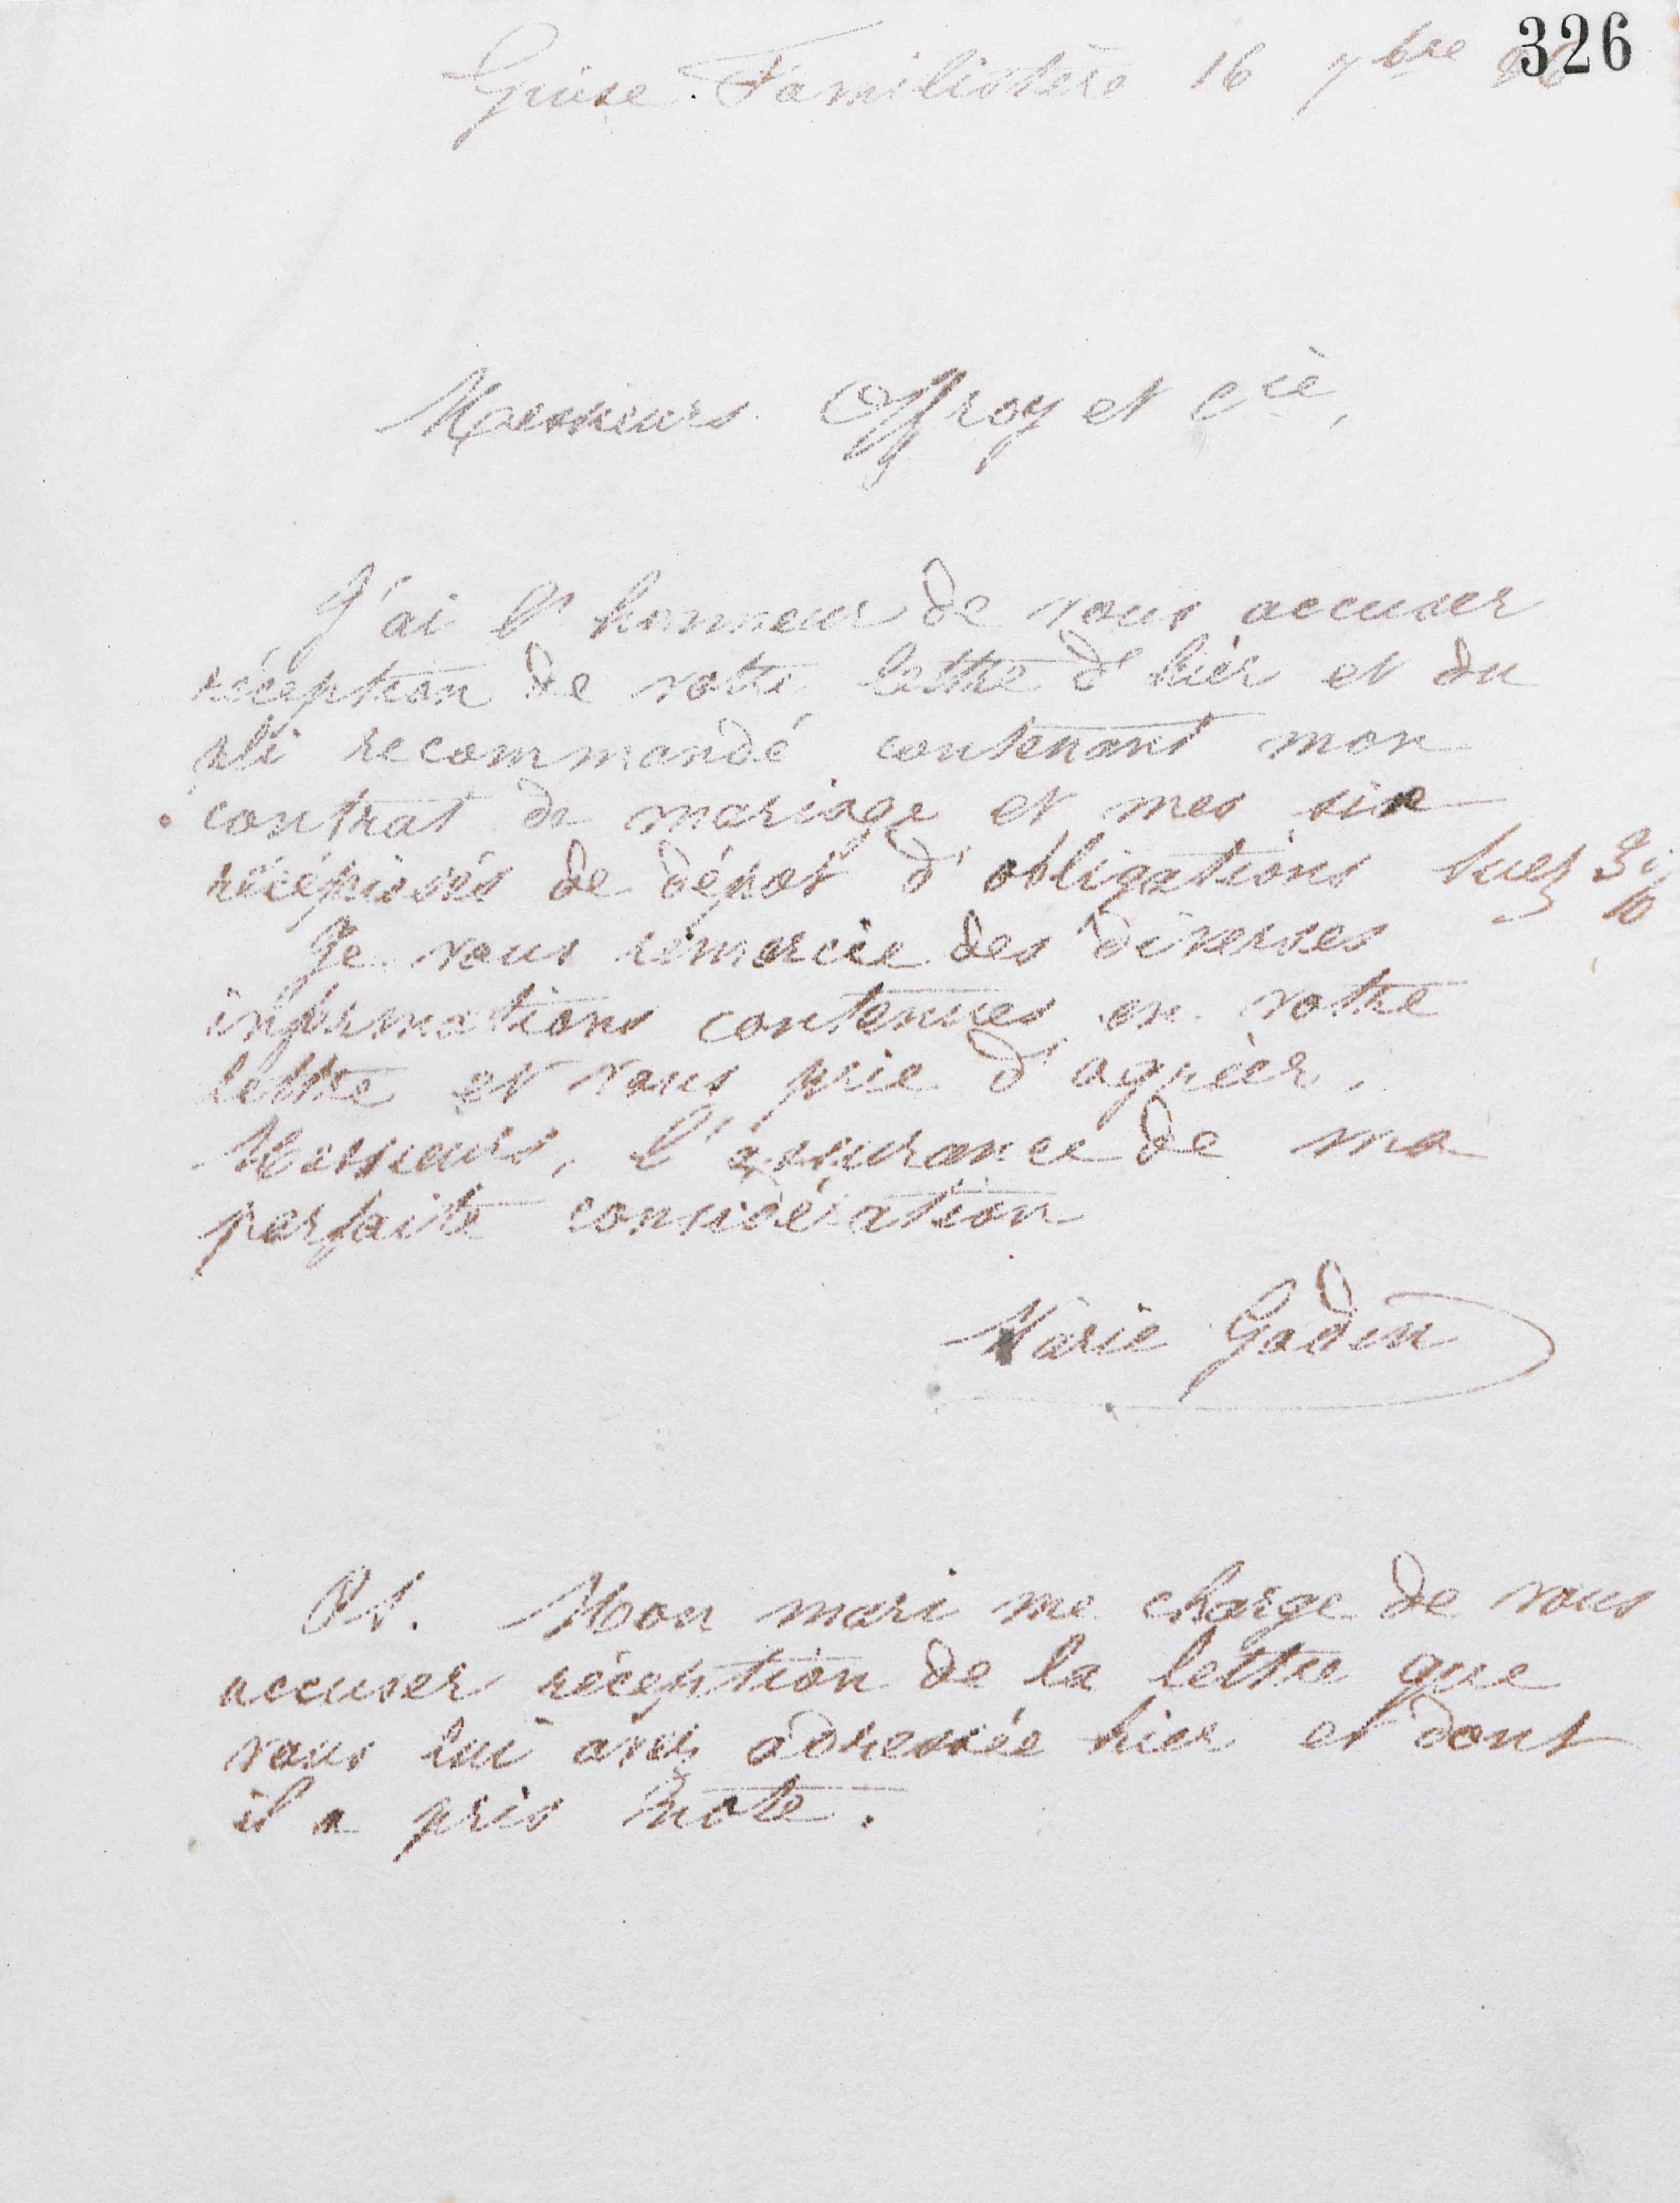 326
Guise Familistère 16 7bre 86
Messieurs Offroy et Cie,
J'ai l'honneur de vous accuser
réception de votre lettre d'hier et du
pli recommandé contenant mon
contrat de mariage et mes six
récépissés de dépôt d'obligations Suez
Je vous remercie des diverses
informations contenues en votre
lettre et vous prie d'agréer,
Messieurs, l'assurance de ma
parfaite considération
Marie Godin
PS. Mon mari me charge de vous
accuser réception de la lettre que
vous lui avez adressée hier et dont
il a pris note.